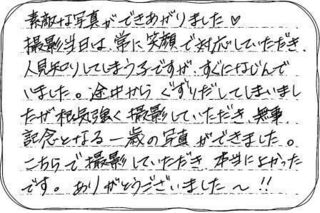 素敵な写真ができあがりました♡
撮影当日は、常に笑顔で対応していただき、
人見知りしてしまう子ですが、すぐになじんで
いました。途中から ぐずりだしてしまいまし
たが 根気強く 撮影していただき、無事、
記念となる 一歳の写真 ができました。
こちらで撮影していただき、本当によかった
です。ありがとうございました〜!!